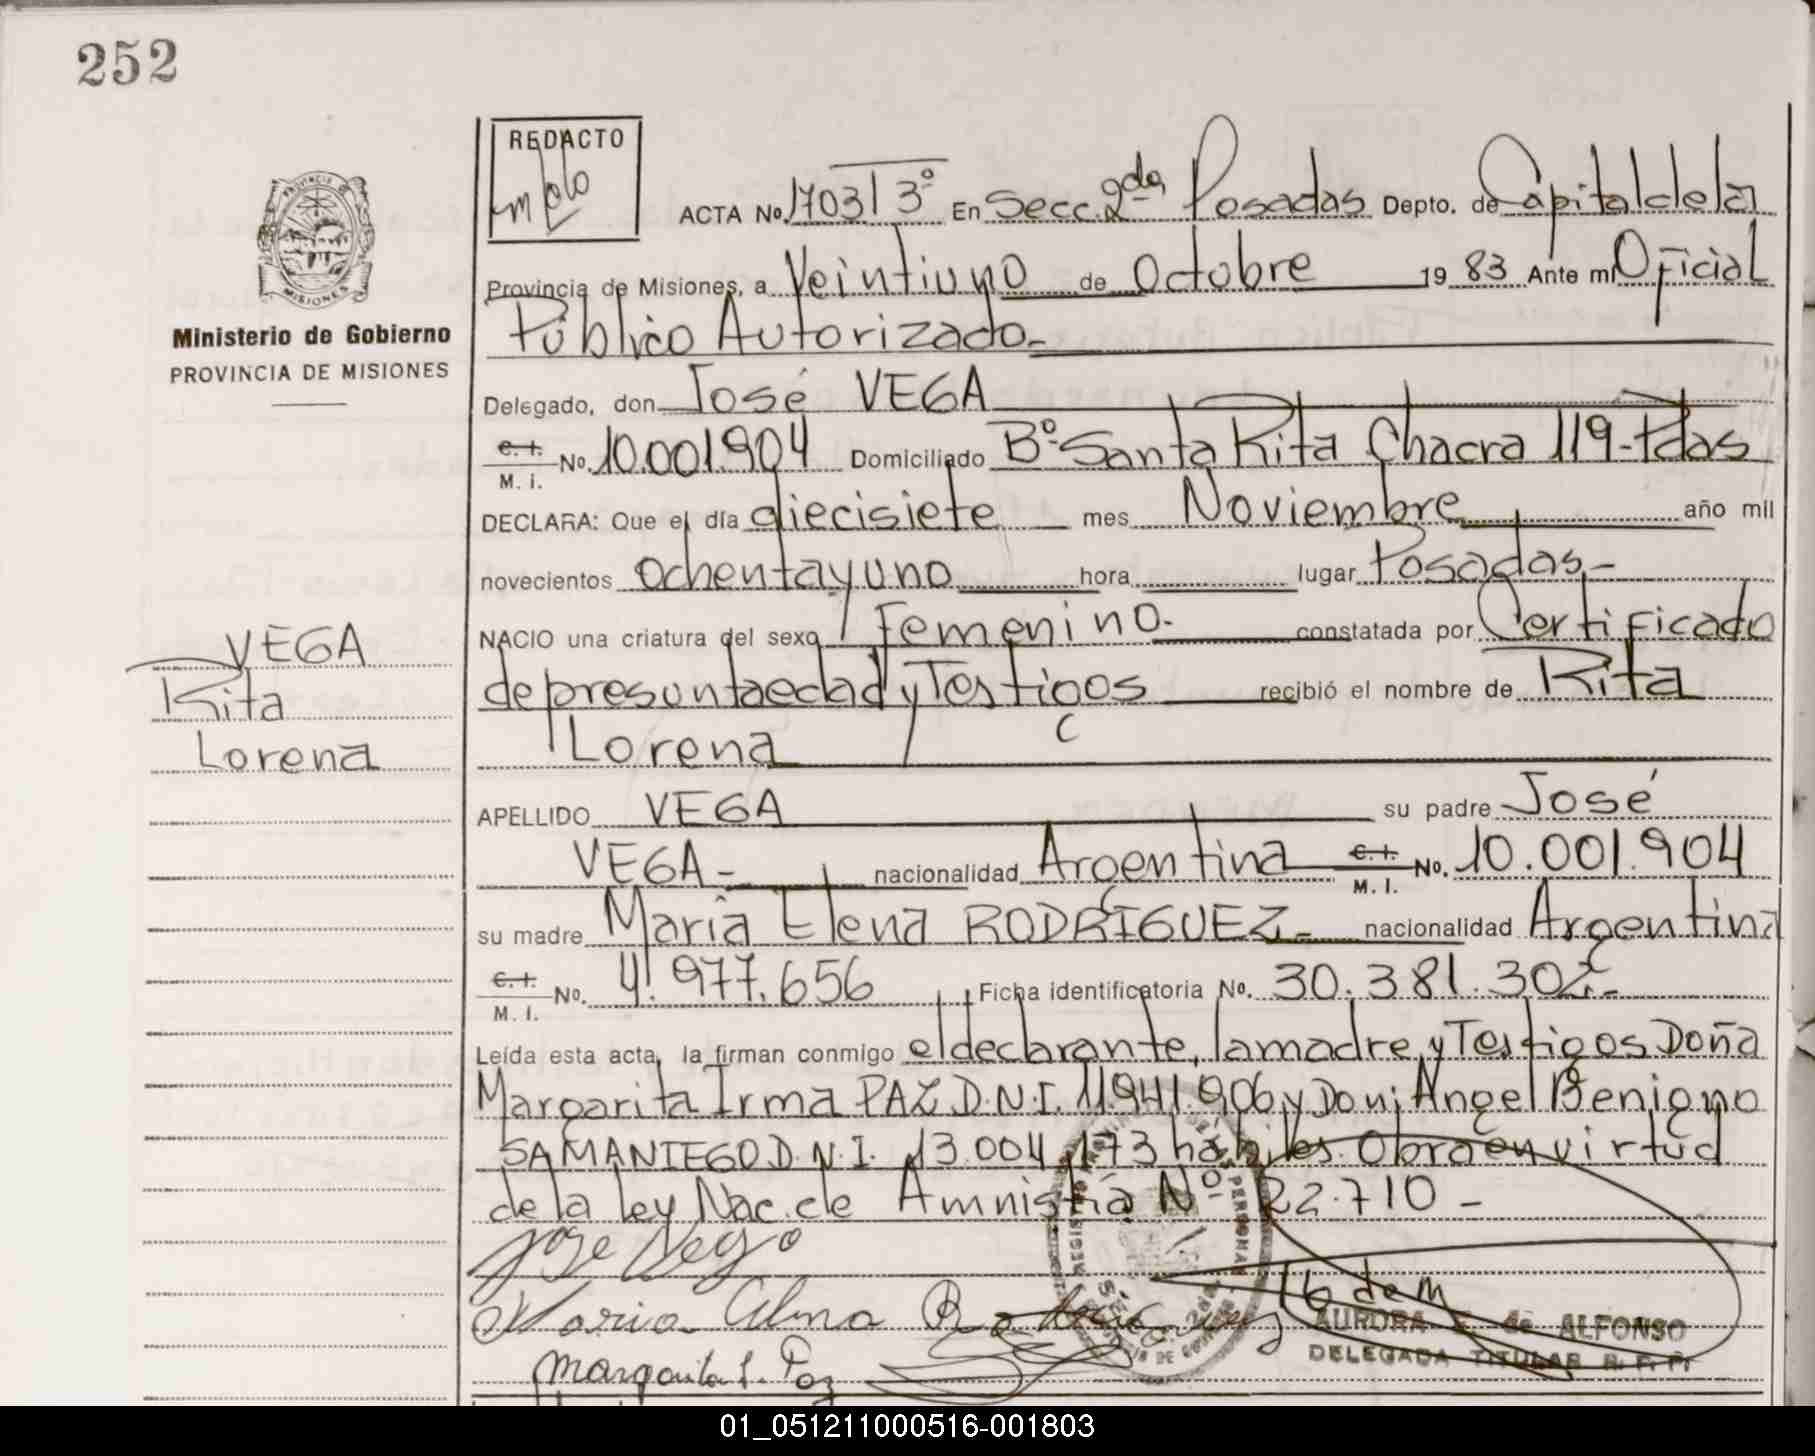 252
REDACTO
ACTA No. 1703 T 3º En Secc. 2da Posadas Depto. de Capital de la
Provincia de Misiones, a Veintiuno de Octubre 19 83 Ante mi Oficial
Público Autorizado.-
PROVINCIA DE MISIONES
Ministerio de Gobierno
PROVINCIA DE MISIONES
Delegado, don José VEGA
C. I. M. I. No. 10.001.904 Domiciliado Bº Santa Rita Chacra 119-Pdas
DECLARA: Que el día diecisiete mes Noviembre año mil
novecientos ochenta y uno hora lugar Posadas.-
NACIO una criatura del sexo Femenino.- constatada por Certificado
de presunta edad y Testigos recibió el nombre de Rita
Lorena
VEGA
Rita
Lorena
APELLIDO VEGA su padre José
VEGA.- nacionalidad Argentina C. I. M. I. No. 10.001.904
su madre María Elena RODRÍGUEZ.- nacionalidad Argentina
C. I. M. I. No. 4.977.656 Ficha identificatoria No. 30.381.302.-
Leída esta acta, la firman conmigo el declarante, la madre, y Testigos Doña
Margarita Irma PAZ D.N.I. 11.941.906 y Don Angel Benigno
SAMANIEGO D.N.I. 13.004.173 hábiles. Obra en virtud
de la ley Nac. de Amnistía Nº 22.710 -
Jose Vega
Maria Elena Rodriguez
Margarita I. Paz
AURORA E. de ALFONSO
DELEGADA TITULAR R. P. P.
01_051211000516-001803